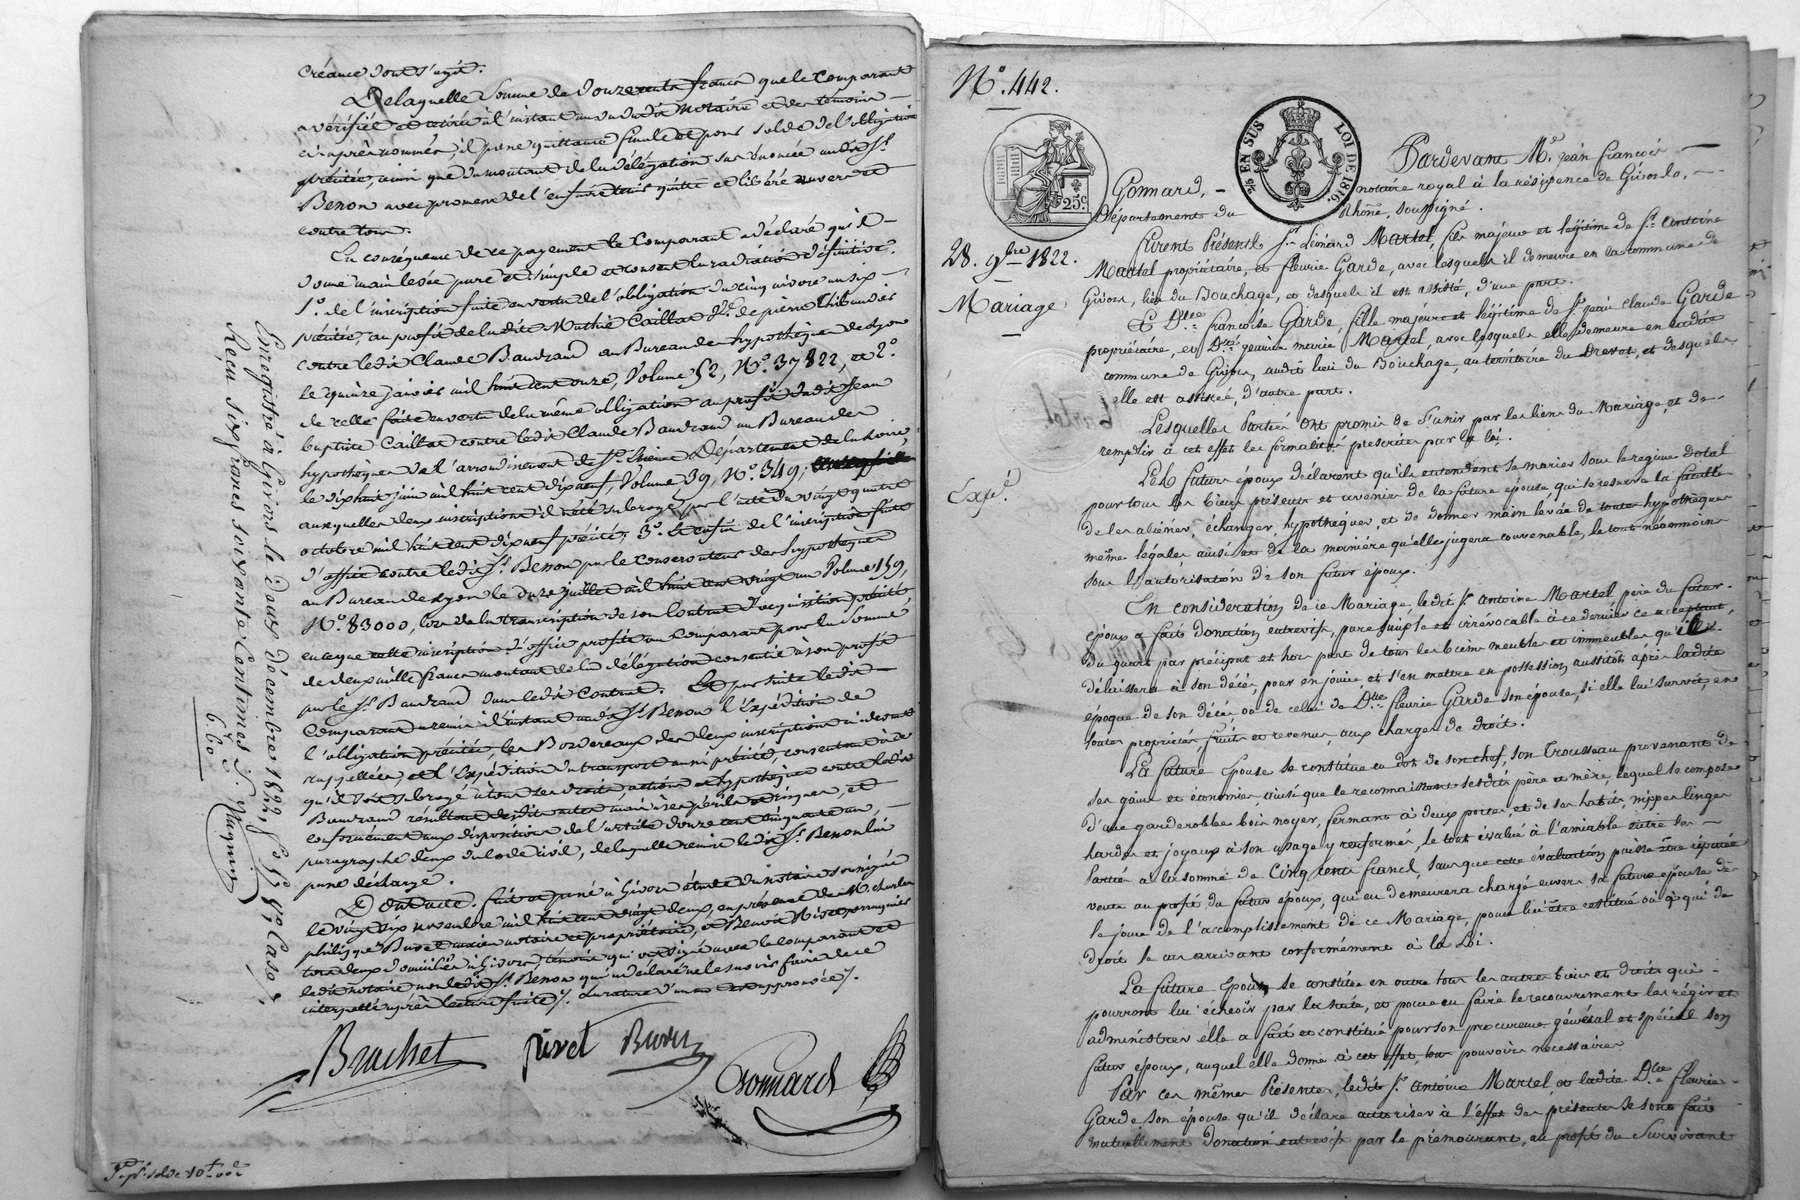 créance dont s'agit.
De laquelle Somme de Douze cents francs que le Comparant
a vérifiée et retirée à l'instant au vu du dit Notaire et des témoins
ci-après nommés, il passe quittance finale et pour solde de l'obligation
précitée, ainsi que du montant de la délégation sus énoncée audit Sr.
Benon avec promesse de l'en faire tenir quitte et libéré envers et
contre tous.
En conséquence de ce payement le Comparant a déclaré qu'il
donne main levée pure et simple et consent la radiation définitive.
1o. de l'inscription faite en vertu de l'obligation du cinq nivôse an six
précitée, au profit de la dite Mathie Caillat Ve. de pierre Thibaudier
contre ledit Claude Baudrand au Bureau des hypothèques de Lyon
le quinze janvier mil huit cent onze, Volume 52, No. 37822, et 2o.
de celle faite en vertu de la même obligation au profit dudit Jean
baptiste Caillat contre ledit Claude Baudrand au Bureau des
hypothèques de l'arrondissement de St. Etienne Département de la Loire,
le dix huit juin mil huit cent dix neuf, Volume 39, No. 349,
auxquelles deux inscriptions il a été subrogé par l'acte du vingt quatre
octobre mil huit cent dix neuf précité; 3o. Et enfin de l'inscription faite
d'office contre ledit Sr. Benon par le conservateur des hypothèques
au Bureau de Lyon le onze juillet mil huit cent vingt un Volume 159,
No. 83000, lors de la transcription de son Contrat d'acquisition précité,
en ce que cette inscription d'office profite au Comparant pour la Somme
de deux mille francs montant de la délégation consentie à son profit
par le Sr. Baudrand dans ledit Contrat. Et par suite ledit
Comparant a remis à l'instant audit Sr. Benon l'Expédition de
l'obligation précitée, les Bordereaux des deux inscriptions ci devant
rappellées, et l'Expédition du transport aussi précité, consentant à ce
qu'il soit subrogé à tous les droits actions et hypothèques contre ledit
Baudrand résultant desdits actes mais à ses périls et risques, et
conformément aux dispositions de l'article douze cent cinquante un,
paragraphe deux du Code civil, de laquelle remise ledit Sr. Benon lui
passe décharge.
Dont acte. fait et passé à Givors étude du notaire soussigné
le vingt six novembre mil huit cent vingt deux, en présence de M. Charles
philippe Buret ancien notaire et propriétaire, et Benoit Pivet perruquier
tous deux domiciliés à Givors, témoins qui ont signé avec le Comparant et
ledit notaire non ledit Sr. Benon qui a déclaré ne le savoir faire de ce
interpellé après lecture faite. La rature d'un mot approuvée.
Brachet pivet Buret
Gomard
Enregistré à Givors le Douze décembre 1822, fo. 57 Vo. Case
Reçu six francs soixante Centimes
6f. 60c.
No. 442.
25c.
5/6 EN SUS LOI DE 1816.
Pardevant Me. jean françois
Gomard, notaire royal à la résidence de Givors,
Département du Rhône, soussigné.
28. 9bre 1822.
Mariage
Furent Présents Sr. Léonard Martel, fils majeur et légitime de Sr. antoine
Martel propriétaire, et fleurie Garde, avec lesquels il demeure en la commune de
Givors, lieu du Bouchage, et desquels il est assisté, d'une part.
Et Dlle. françoise Garde, fille majeure et légitime de Sr. jean Claude Garde
propriétaire, et Dme. jeanne marie Martel, avec lesquels elle demeure en ladite
commune de Givors, audit lieu du Bouchage, au territoire du Drevet, et desquels
elle est assistée, d'autre part.
Lesquelles Parties ont promis de s'unir par les liens du Mariage, et de
remplir à cet effet les formalités prescrites par la loi.
Expé.
Les futurs époux déclarent qu'ils entendent se marier sous le régime dotal
pour tous les biens présents et avenir de la future épouse qui se réserve la faculté
de les aliéner, échanger, hypothéquer, et de donner main levée de toutes hypothèques
même légales ainsi et de la manière qu'elle jugera convenable, le tout néanmoins
sous l'autorisation de son futur époux.
En considération de ce Mariage, ledit Sr. antoine Martel père du futur
époux a fait donation entrevifs, pure simple et irrévocable à ce dernier ce acceptant,
du quart par préciput et hors part de tous les biens meubles et immeubles qu'il
délaissera à son décès, pour en jouir et s'en mettre en possession aussitôt après ladite
époque de son décès, ou de celui de Dme. fleurie Garde son épouse, si elle lui survit, en
toutes propriétés, fruits et revenus, aux charges de droit.
La future épouse se constitue en dot de son chef, son trousseau provenant de
ses gains et économies, ainsi que le reconnaissent sesdits père et mère, lequel se compose
d'une garderobbe bois noyer, fermant à deux portes, et de ses habits, nippes linges
hardes et joyaux à son usage y renfermés, le tout évalué à l'amiable entre les
Parties à la somme de Cinq cents francs, sans que cette évaluation puisse être réputée
vente au profit du futur époux, qui en demeurera chargé envers sa future épouse dès
le jour de l'accomplissement de ce Mariage, pour lui être restitué ou à qui de
droit le cas arrivant conformément à la Loi.
La future épouse se constitue en outre tous les autres biens et droits qui
pourront lui échoir par la suite, et pour en faire le recouvrement les régir et
administrer elle a fait et constitué pour son procureur général et spécial son
futur époux, auquel elle donne à cet effet, tous pouvoirs nécessaires
Par ces mêmes Présentes, ledit Sr. antoine Martel et ladite Dme. fleurie
Garde son épouse qu'il déclare autoriser à l'effet des présentes se sont fait
mutuellement donation entrevifs par le prémourant, au profit du survivant